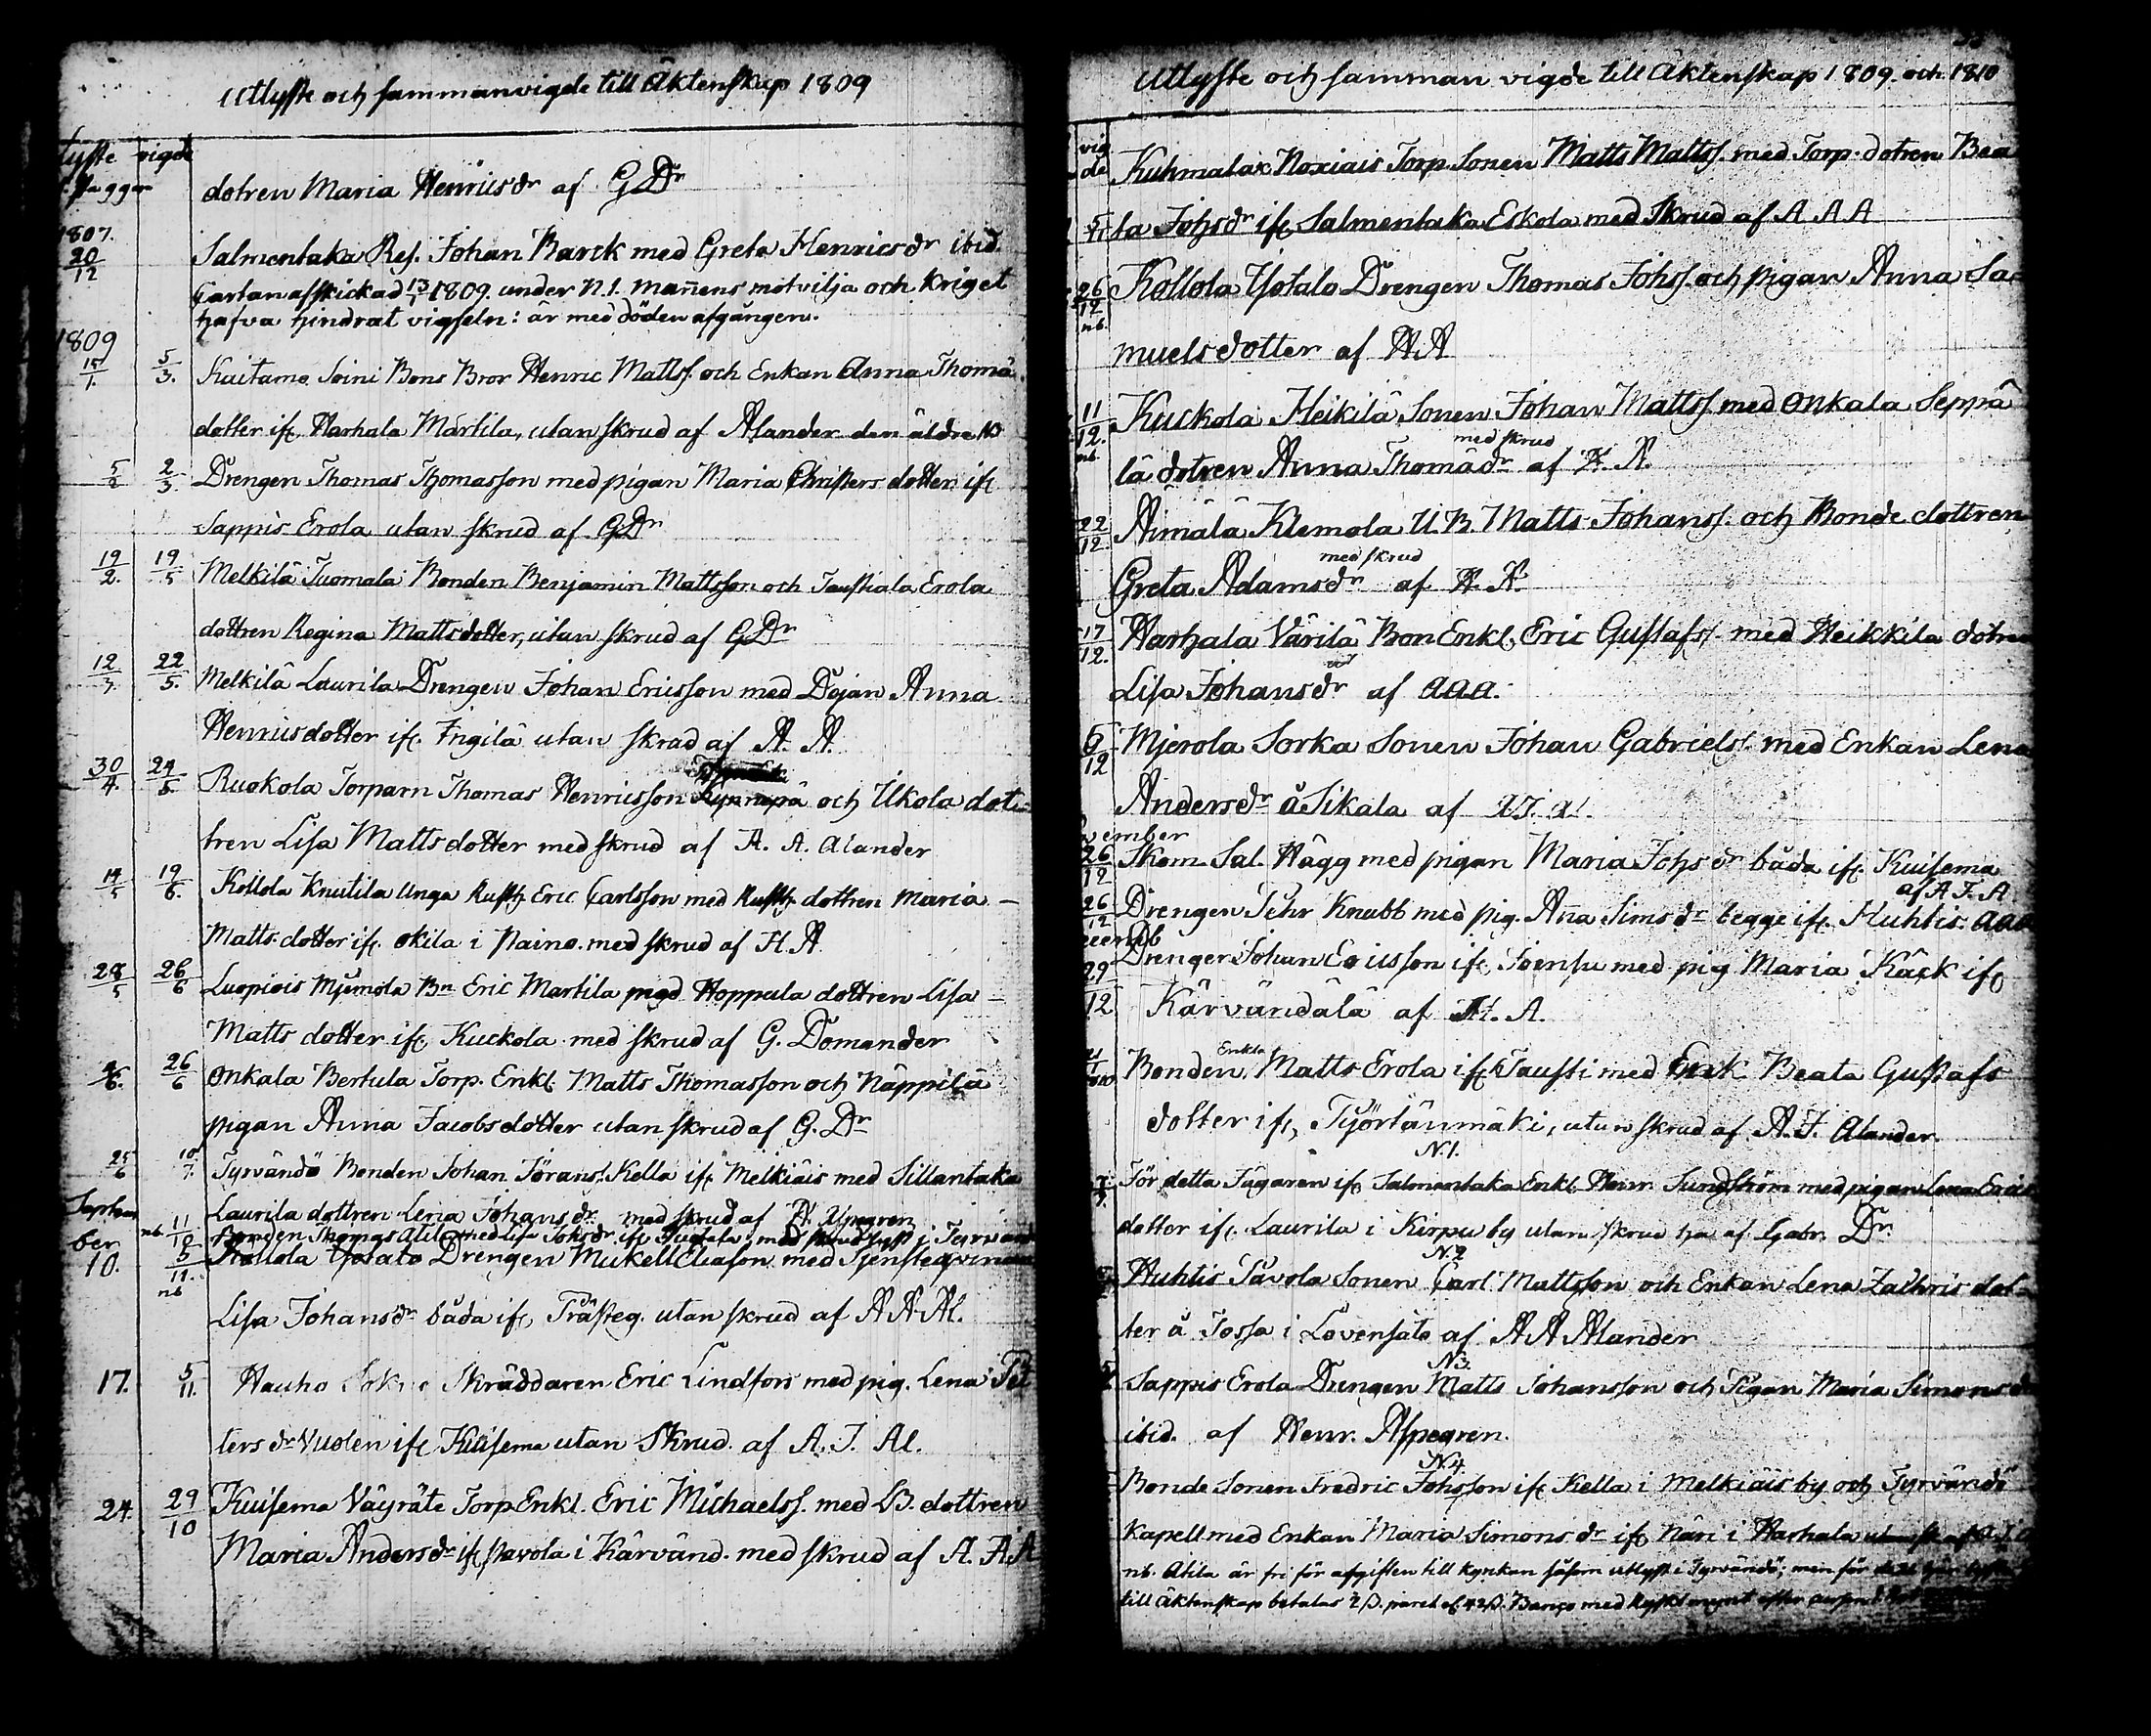 Utlyste och sammanvigde till Äktenskap 1809
lyste vigde
dotren Maria Henricsdr af G Dr
1807.
20/12 Salmentaka Ref. Johan Barck med Greta Henricsdr ibid.
Cartan afskickad 13/1 1809. under N.1. mañens motvilja och kriget
hafva hindrat vigseln: är med döden afgången.
1809
15/1. 5/3. Kaitamo Soini Bons Bror Henric Matts. och Enkan Anna Thomä
dotter ifr. Harhala Märtila, utan skrud af Alander den äldre
5/2 2/3. Drengen Thomas Thomasson med pigan Maria Christers dotter ifr
Sappis Erola utan skrud af G Dr
19/2. 19/5 Melkilä Tuomala Bonden Benjamin Mattsson och Taustiala Erola
dottren Regina Mattsdotter, utan skrud af G Dr
12/3. 22/5. Melkilä Laurila Drengen Johan Ericsson med Dejan Anna
Henricsdotter ifr. Ingilä utan skrud af A. A.
30/4. 24/5. Ruokola Torparn Thomas Henricsson och Ukola dot=
tren Lisa Mattsdotter med skrud af A. A. Alander
14/5 19/6. Kollola Knutila Unga Rusth. Eric Carlsson med Rusth. dottren Maria
Matts dotter ifr. Okila i Naino. med skrud af H. A
28/5 26/6 Luopiois Mjemola Bn Eric Martila med Hoppula dottren Lisa
Matts dotter ifr. Kuckola med skrud af G. Domander
26/6 Onkala Bertula Torp. Enkl. Matts Thomasson och Näppilä
pigan Anna Jacobsdotter utan skrud af G. Dr
25/6 10/7. Tyrvändö Bonden Johan Jörans. Kella ifr Melkiäis med Sillantaka
Laurila dottren Lena Johansdr. med skrud af H. Aspegren
Septem
ber nb. 11/ Bonden Thomas Atila med Lisa Johsdr. ifr med skrud lyst i Tyrvänd
10. 5/11. nb Kollola Yotalo Drengen Mickell Eliason med Tjensteqvinnan
Lisa Johansdr båda ifr, Prästeg. utan skrud af A A Al.
17. 5/11. Hauho Skräddaren Eric Lindfors med pig. Lena Pet
ters dr Vuolen ifr Kuisema utan Skrud. af A. J. Al.
24. 29/10 Kuisema Väyräte Torp Enkl. Eric Michaels. med B. dottren
Maria Andersdr ifr Pavola i Kärvänd. med skrud af A. A A
Utlyste och samman vigde till Äktenskap 1809. och 1810
vig
de Kuhmalax Noxiais Torp. Sonen Matts Matts. med Torp. dotren Bea
ta Johsdr ifr Salmentaka Eskola med Skrud af A A A
26/12 nb. Kollola Yotalo Drengen Thomas Johs. och pigan Anna Sa=
muelsdotter af A A
11/12. nb. Kuckola Heikilä Sonen Johan Matts. med Onkala Seppä
med skrud
lä dotren Anna Thomädr af A. A.
22/12. Äimälä Klemola U. B. Matts Johans. och Bonde dottren
med skrud
Greta Adamsdr af A. A.
17/12. Harhala Värilä Bon Enkl. Eric Gustafs. med Heikkila dotren
Lisa Johansdr af AAA.
6/12 Mjerola Sorka Sonen Johan Gabriels. med Enkan Lena
Andersdr å Sikala af A. J. A.
vember
26/12 Skom. Sal. Hägg med pigan Maria Johsdr båda ifr. Kuisema
af A. J. A.
26/12 Drengen Sehr Knubb med pig. Aña Simsdr begge ifr. Huhtis. AAA
Drengen Johan Ericsson ifr, Soensu med pig Maria Käck ifr
29/12 Kärvändälä af H. A.
Enkl.
Bonden Matts Erola ifr Tausti med Enk. Beata Gustafs
dotter ifr, Työrtänmäki, utan skrud af A. J. Alander.
N.1.
För detta Jägaren ifr Salmentaka Enkl. Henr. Sundström med pigan Lena Erics
dotter ifr. Laurila i Kirpu by utan skrud af Gabr. Dr.
N.2
Huhtis Pavola Sonen Carl Mattsson och Enkan Lena Zachris dot=
ter å Jossa i Lovensalo af A A Alander
N3.
Sappis Erola Drengen Matts Johansson och Pigan Maria Simonsdr
ibid. af Henr. Aspegren.
N4
Bonde Sonen Fredric Johsson ifr Kella i Melkiäis by och Tyrvändö
Kapell med Enkan Maria Simonsdr ifr Näri i Harhala
nb. Atila är fri för afgiften till kyrkan såsom utlyst i Tyrvändö; men för
till Äktenskap betalas